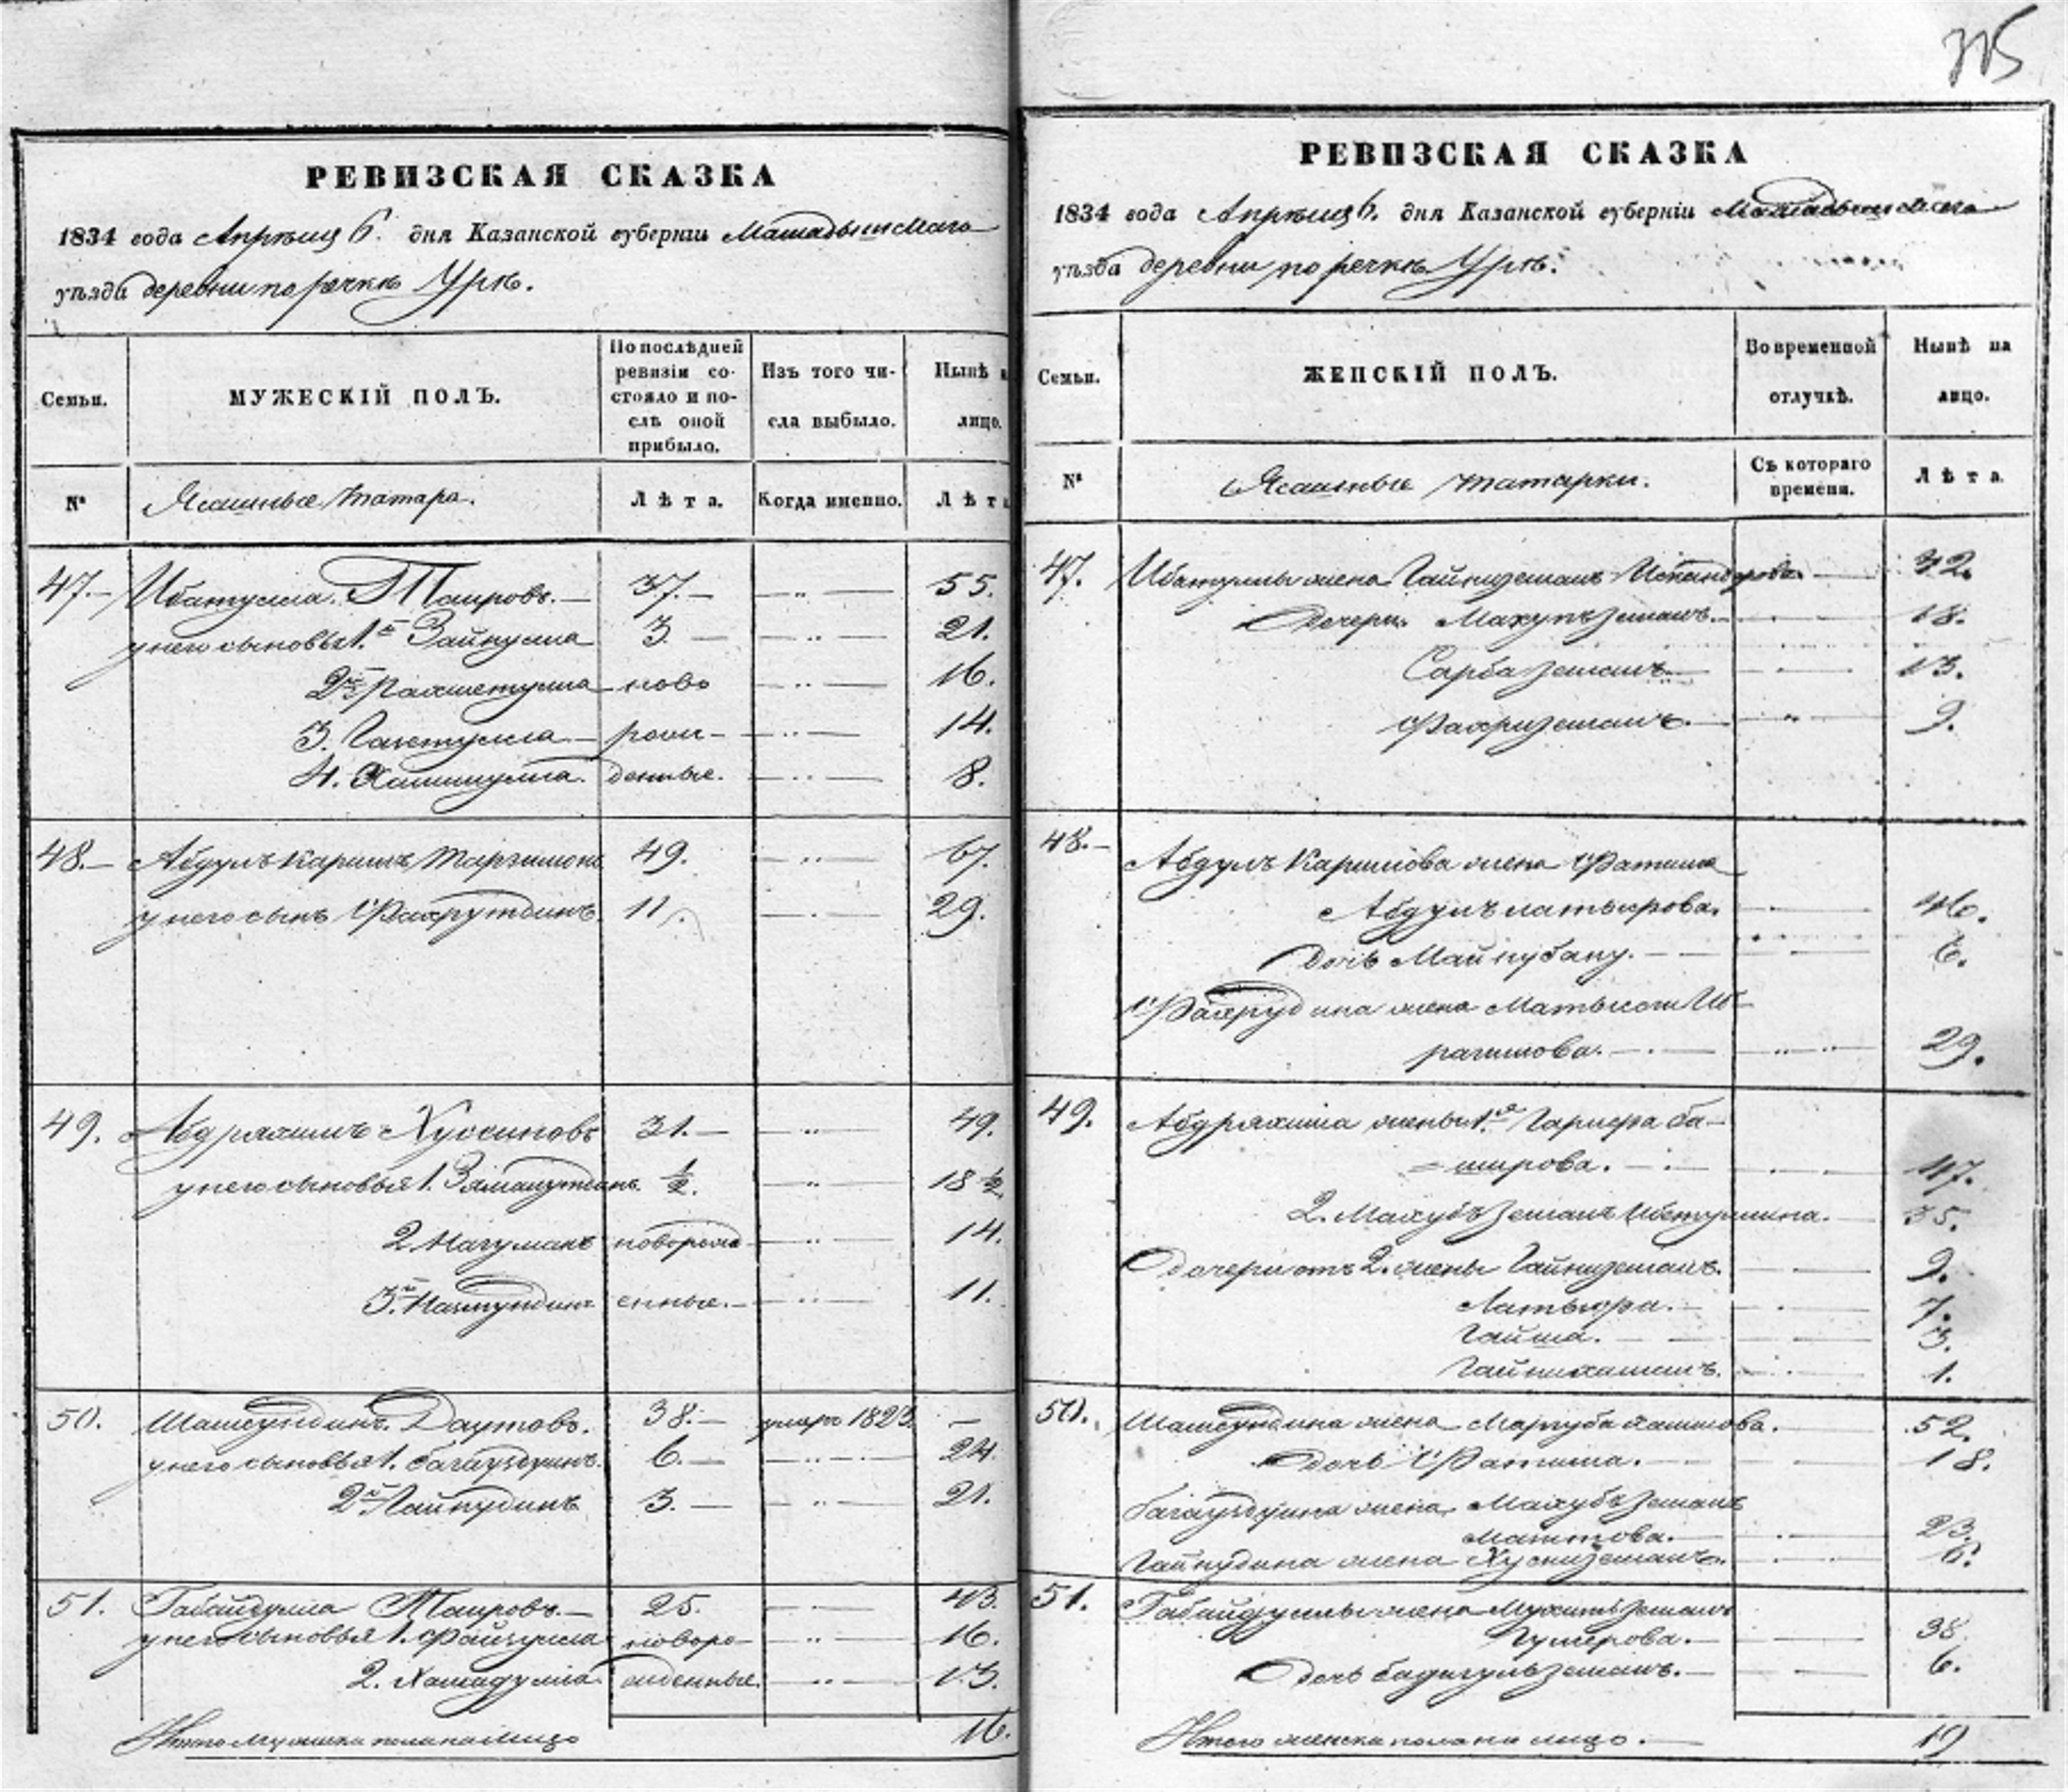 315
РЕВИЗСКАЯ СКАЗКА
1834 года Апрѣля 6. дня Казанской губерніи Мамадышскаго
уѣзда деревни по речкѣ Урѣ.
Семьи.
МУЖЕСКІЙ ПОЛЪ.
По послѣдней
ревизіи со-
стояло и по-
слѣ оной
прибыло.
Изъ того чи-
сла выбыло.
Нынѣ н
лицо.
№
Ясашные татара.
Лѣта.
Когда именно.
Лѣта
47. Ибатулла Таировъ. 37. 55.
у него сыновья 1.й Зайнулла 3 21.
2й Рахметулла ново 16.
3. рож- 14.
4. денные. 8.
48. Абдулъ каримъ 49. 67.
у него сынъ Фахрутдинъ 11. 29.
49. Абдряхимъ Хусаиновъ 31. 49.
у него сыновья 1. 1/2. 18 1/2
2 Нагуманъ поворожд 14.
3.й енные. 11.
50. Шамсутдинъ Даутовъ. 38. умеръ 1823. —
у него сыновья 1. Багаутдинъ. 6. 24.
2й Гайнудинъ 3. 21.
51. Габайдулла Таировъ. 25. 43.
у него сыновья 1. Файзулла новоро- 16.
2. жденные. 13.
Итого мужеска пола на лицо 16.
РЕВИЗСКАЯ СКАЗКА
1834 года Апрѣля 6. дня Казанской губерніи Мамадышскаго
уѣзда деревни по речкѣ Урѣ.
Семьи.
ЖЕНСКІЙ ПОЛЪ.
Во временной
отлучкѣ.
Нынѣ на
лицо.
№
Ясашные татарки.
Съ котораго
времени.
Лѣта.
47. Ибатуллы жена Гайнизямалъ Искандерова. 32.
Дочери 18.
Сарбаземалъ 13.
Фахриземалъ. 9.
48. Абдулъ Каримова жена Фатима
46.
Дочь Майнубану. 6.
Фахрудина жена Иб-
рагимова. 29.
49. Абдряхима жены 1.я ба-
= широва. 47.
2. Махубъ земалъ Ибетуллина. 35.
Дочери отъ 2. жены Гайниземалъ. 9.
7.
Гайша. 3.
1.
50. Шамсутдина жена Маргуба 52.
дочь Фатима. 18.
Багаутдина жена Махубъ земалъ
23.
Гайнудина жена Хусниземалъ.
51. Габайдуллы жена
Гумерова. 38.
дочь Бадигулъземалъ. 6.
Итого женска пола на лицо. 19